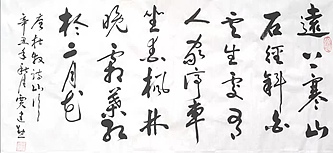 遠上寒山
石徑斜白
雲生處有
人家停車
坐愛楓林
晚霜葉紅
於二月花
唐杜牧詩山行
辛丑年